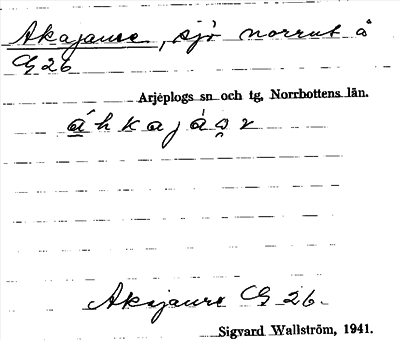 Akajaure, sjö norrut å
G 26
Arjeplogs sn och tg, Norrbottens län.
áhkajáọr
Akajaure G 26.
Sigvard Wallström, 1941.